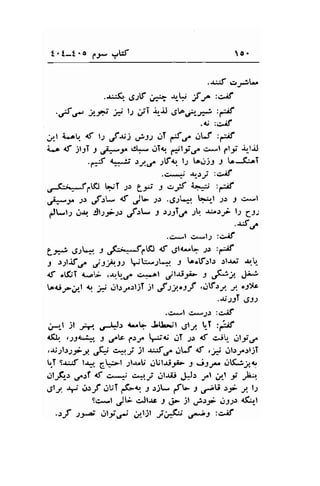 ۱۵۰ کتاب سوم ۴۰۵-۴۰۴
معاشرت کنند.
گفت: هرگز نباید چنین کاری بکنند.
گفتم: شیرینی‌های لذیذ آتن را نیز تجویز نمی‌کنی.
گفت: نه.
گفتم: گمان می‌کنم آن روش زندگی را که باهمهٔ این
لذاید توام است می‌توانیم به‌آن سبک موسیقی و آواز که همه
آهنگ‌ها و وزن‌ها را به‌کار می‌برد تشبیه کنیم.
گفت: تردید نیست.
گفتم: نتیجهٔ کثرت و تنوع در آنجا لگام‌گسیختگی
است و در اینجا بیماری. در حالی که سادگی در موسیقی
روح را خردمند بار می‌آورد و سادگی درخوراک بدن راسالم
می‌کند.
گفت: راست است.
گفتم: در جامعه‌ای که لگام‌گسیختگی و بیماری شیوع
یابد تعداد دادگاه‌ها و بیمارستانها روبفزونی می‌گذارد و
شغل پزشکی و حقوقدانی اهمیت می‌یابد، خاصه آنگاه که
علاوه بر بردگان، گروه‌بزرگی از آزادمردان نیز به این‌حرفه‌ها
روی آورند.
گفت: درست است.
گفتم: آیا برای انحطاط جامعه دلیلی بهتر از این
می‌توان یافت که در آن نه‌تنها مردم عامی و پیشه‌ور، بلکه
آزادمردان نیز، که گمان می‌کنند از تربیت نیکی برخوردارند،
به‌پزشکان معروف و حقوقدانان نامدار احتیاج پیدا کنند؟ آیا
بنظر تو این امر دلیل فقدان تربیت نیست که آدمی دیگران
را بر خود قاضی و حاکم سازد و به‌حکم آنان گردن نهد برای
اینکه درون خودش از حق و عدالت خالی است؟
گفت: وضعی ننگین‌تر ازاین نمی‌توان تصور کرد.